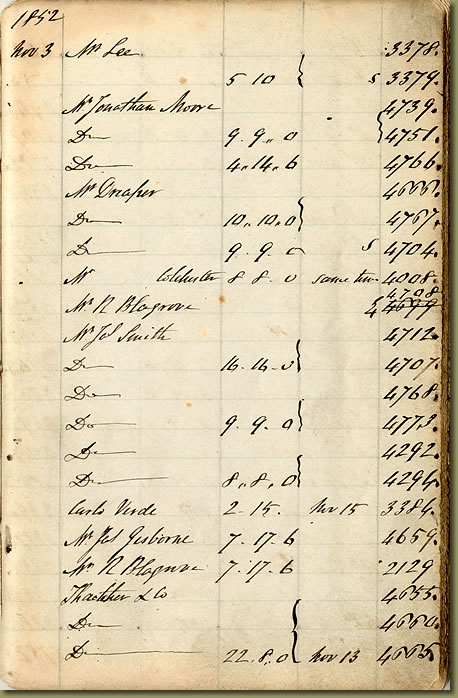 1852
Nov 3 Mr Lee 3378.
5 10 s 3379.
Mr Jonathan Moore 4739.
Do 9. 9. 0 4751.
Do 4. 14. 6 4766.
Mr
Do 10. 10. 0 4767.
Do 9. 9. 0 s 4704.
Mr Colchester 8 8. 0 same time 4008.
4708
Mr R Blagrove 4
Mr Jas Smith 4712.
Do 16. 16. 0 4707.
Do 4768.
Do 9. 9. 0 4773.
Do 4292.
Do 8. 8. 0 4294.
Carlo Verde 2. 15. Nov 15 3384.
Mr Jas Gisborne 7. 17. 6 4659.
Mr R Blagrove 7. 17. 6 2129
Thatcher & Co 4655.
Do 4660.
Do 22. 8. 0 Nov 13 4665.